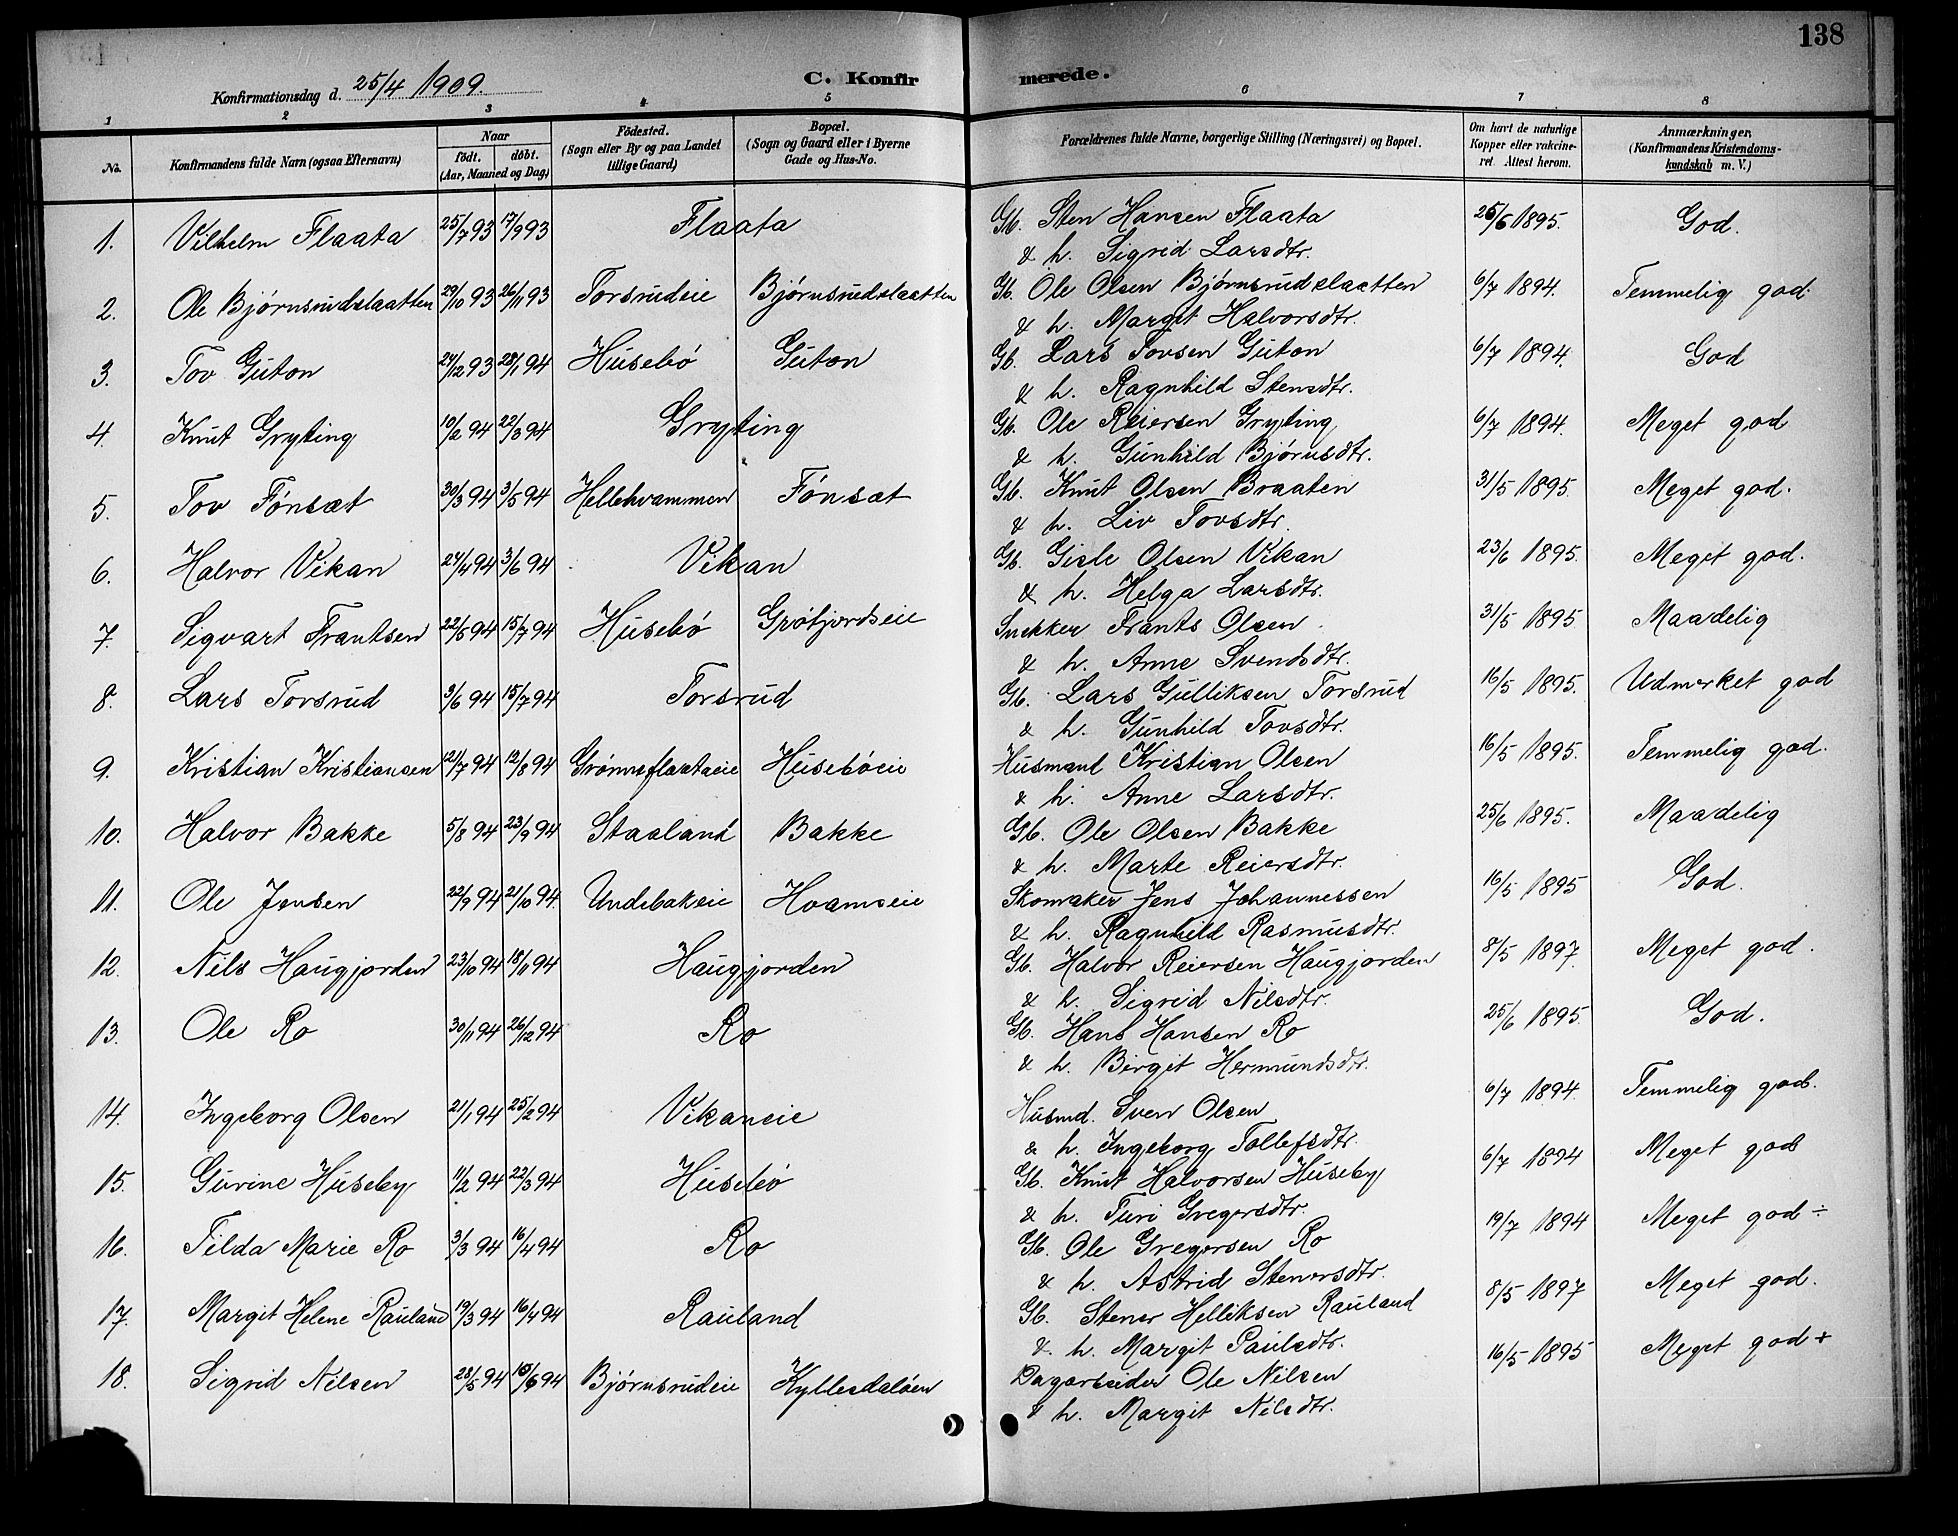 138
Konfirmationsdag d. 25/4 1909. C. Konfirmerede.
1 2 3 4 5 6 7 8
No. Konfirmandens fulde Navn (ogsaa Efternavn) Naar födt. döbt. (Aar, Maaned og Dag) Födested. (Sogn eller By og paa Landet tillige Gaard) Bopæl. (Sogn og Gaard eller i Byerne Gade og Hus-No. Forældrenes fulde Navne, borgerlige Stilling (Næringsvei) og Bopæl. Om havt de naturlige Kopper eller vakcineret. Attest herom. Anmærkninger, (Konfirmandens Kristendomskundskab m. V.)
1. Vilhelm Flaata 25/7 93 17/9 93 Flaata Gb. Sten Hansen Flaata 25/6 1895. God.
& h. Sigrid Larsdtr.
2. Ole Bjørnsrudslaatten 29/10 93 26/11 93 Torsrudeie Bjørnsrudslaatten Gb. Ole Olsen Bjørnsrudslaatten 6/7 1894. Temmelig god.
& h. Margit Halvorsdtr.
3. Tov Guton 24/12 93 28/1 94 Husebö Guton Gb. Lars Tovsen Guton 6/7 1894. God
& h. Ragnhild Stensdtr.
4. Knut Gryting 10/2 94 22/3 94 Gryting Gb. Ole Reiersen Gryting 6/7 1894. Meget god
& h. Gunhild Bjørnsdtr.
5. Tov Fönsæt 30/3 94 3/5 94 Hellekvammen Fönsæt Gb. Knut Olsen Braaten 31/5 1895. Meget god.
& h. Liv Tovsdtr.
6. Halvor Vikan 24/4 94 3/6 94 Vikan Gb. Gisle Olsen Vikan 23/6 1895. Meget god.
& h. Helga Larsdtr.
7. Sigvart Frantsen 22/5 94 15/7 94 Husebö Gröfjordseie Snekker Frants Olsen 31/5 1895 Maadelig
& h. Anne Svendsdtr.
8. Lars Torsrud 3/6 94 15/7 94 Torsrud Gb. Lars Gulliksen Torsrud 16/5 1895. Udmerket god
& h. Gunhild Tovsdtr.
9. Kristian Kristiansen 12/7 94 12/8 94 Grönneflaataeie Huseböeie Husmand Kristian Olsen 16/5 1895. Temmelig god.
& h. Anne Larsdtr.
10. Halvor Bakke 5/8 94 23/9 94 Staaland Bakke Gb. Ole Olsen Bakke 25/6 1895. Maadelig
& h. Marte Reiersdtr.
11. Ole Jensen 22/9 94 21/10 94 Undebakeie Hvamseie Skomaker Jens Johannessen 16/5 1895 God.
& h. Ragnhild Rasmusdtr.
12. Nils Haugjorden 23/10 94 18/11 94 Haugjorden Gb. Halvor Reiersen Haugjorden 8/5 1897. Meget god.
& h. Sigrid Nilsdtr.
13. Ole Ro 30/11 94 26/12 94 Ro Gb. Hans Hansen Ro 25/6 1895. God.
& h. Birget Hermundsdtr.
14. Ingeborg Olsen 21/1 94 25/2 94 Vikaneie Husmd. Sven Olsen 6/7 1894. Temmelig god.
& h. Ingeborg Tollefsdtr.
15. Gurine Huseby 11/2 94 22/3 94 Husebö Gb. Knut Halvorsen Huseby 6/7 1894 Meget god
& h. Turi Gregersdtr.
16. Tilda Marie Ro 3/3 94 16/4 94 Ro Gb. Ole Gregersen Ro 19/7 1894 Meget god ÷
& h. Astrid Stenersdtr.
17. Margit Helene Rauland 19/3 94 16/4 94 Rauland Gb. Stener Helliksen Rauland 8/5 1897 Meget god.
& h. Margit Paulsdtr.
18. Sigrid Nilsen 28/5 94 94 Bjørnsrudeie Kyllesdalöen Dagarbeider Ole Nilsen 16/5 1895 Meget god +
& h. Margit Nilsdtr.